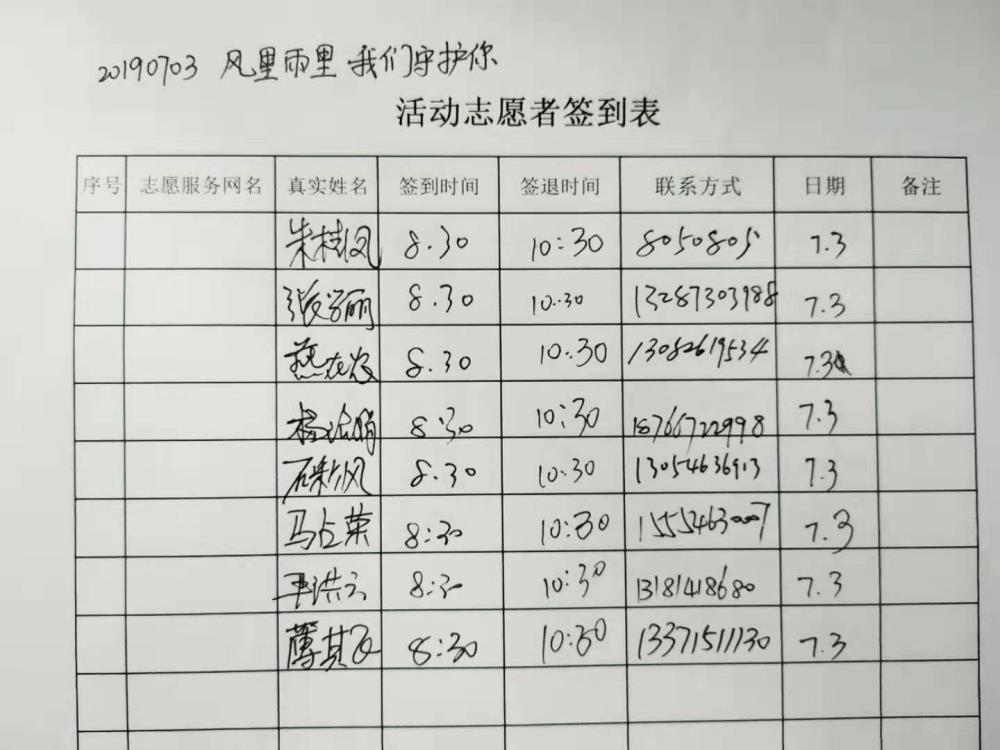 20190703 风里雨里 我们守护你
活动志愿者签到表
序号 志愿服务网名 真实姓名 签到时间 签退时间 联系方式 日期 备注
朱桂凤 8.30 10:30 8050805 7.3
张学丽 8.30 10.30 13287303988 7.3
8.30 10.30 13082619534 7.3
8:30 10:30 18766722998 7.3
石彩凤 8.30 10.30 13054636913 7.3
马占荣 8:30 10:30 15554630007 7.3
8:30 10:30 13181418680 7.3
薄其飞 8:30 10:30 13371511130 7.3